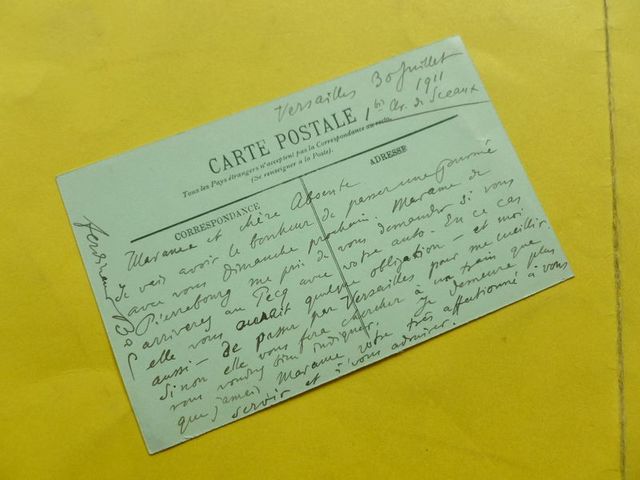 Versailles 30 Juillet
1911
1 bis Av. de Sceaux
CARTE POSTALE
Tous les Pays étrangers n'acceptent pas la Correspondance au recto.
(Se renseigner à la Poste).
CORRESPONDANCE
ADRESSE
Madame et chère Absente
Je vais avoir le bonheur de passer une journée
avec vous Dimanche prochain. Madame de
Pierrebourg me prie de vous demander si vous
arriverez au Pecq avec votre auto. En ce cas
elle vous aurait quelque obligation - et moi
aussi - de passer par Versailles pour me cueillir.
Sinon elle vous fera chercher à un train que
vous voudrez bien indiquer. Je demeure plus
que jamais Madame, votre très affectionné à vous
servir et à vous admirer.
Ferdinand Bac